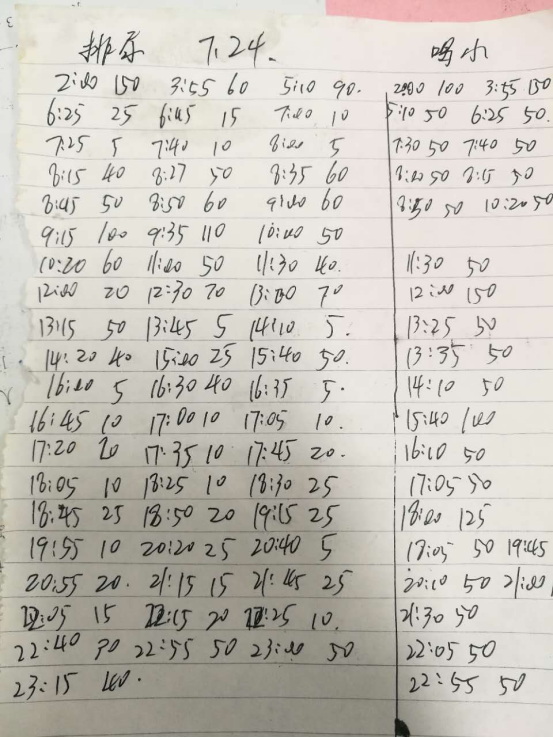 排尿 7.24. 喝水
2:00 150 3:55 60 5:10 90. 2:00 100 3:55 150
6:25 25 6:45 15 7:00 10 5:10 50 6:25 50.
7:25 5 7:40 10 8:00 5 7:30 50 7:40 50
8:15 40 8:27 50 8:35 60 8:00 50 8:15 50
8:45 50 8:50 60 9:00 60 8:50 50 10:20 50
9:15 100 9:35 110 10:00 50
10:20 60 11:00 50 11:30 40. 11:30 50
12:00 20 12:30 70 13:00 70 12:00 150
13:15 50 13:45 5 14:10 5. 13:25 50
14:20 40 15:00 25 15:40 50. 13:35 50
16:00 5 16:30 40 16:35 5. 14:10 50
16:45 10 17:00 10 17:05 10. 15:40 100
17:20 20 17:35 10 17:45 20. 16:10 50
18:05 10 18:25 10 18:30 25 17:05 50
18:45 25 18:50 20 19:15 25 18:00 125
19:55 10 20:20 25 20:40 5 50 19:45
20:55 20. 21:15 15 21:45 25 20:10 50 21:00
22:05 15 22:15 20 22:25 10. 21:30 50
22:40 30 22:55 50 23:00 50 22:05 50
23:15 40. 22:55 50